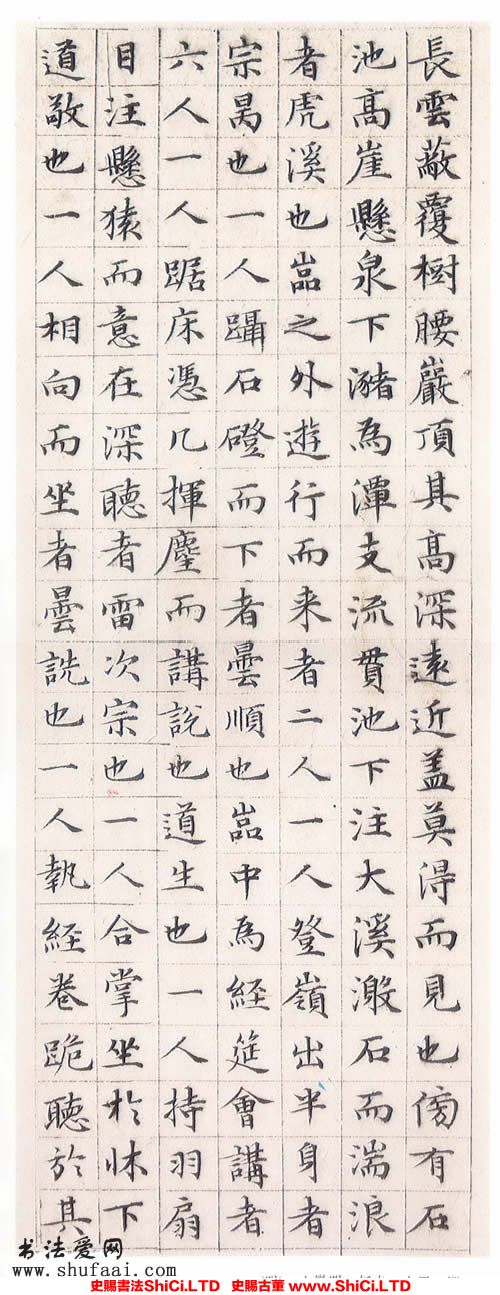 長雲蔽覆樹腰巖頂其高深遠近盖莫得而見也傍有石
池高崖懸泉下瀦為潭支流貫池下注大溪潑石而湍浪
者虎溪也嵓之外遊行而来者二人一人登嶺出半身者
宗昺也一人躡石磴而下者曇順也嵓中為經筵會講者
六人一人踞床憑几揮麈而講說也道生也一人持羽扇
目注懸猿而意在深聽者雷次宗也一人合掌坐於床下
道敬也一人相向而坐者曇詵也一人執経卷跪聽於其
书法爱网
www.shufaai.com
史賜書法ShiCi.LTD 史賜古董 www.ShiCi.LTD